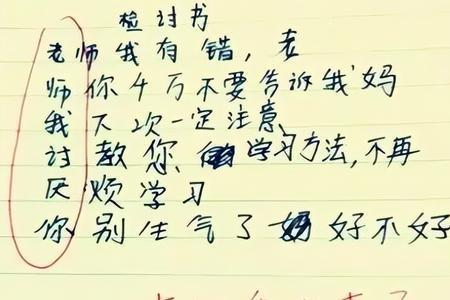 检讨书
老师我有错，老
师你千万不要告诉我妈
我下次一定注意、
讨教您、学习方法，不再
厌烦学习
你别生气了好不好